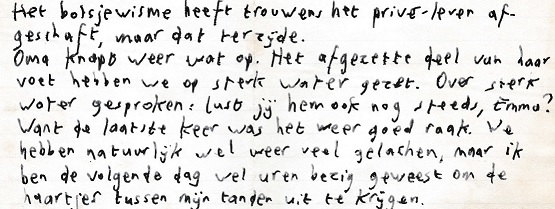 Het bolsjewisme heeft trouwens het privé-leven af-
geschaft, maar dat terzijde.
Oma knapt weer wat op. Het afgezette deel van haar
voet hebben we op sterk water gezet. Over sterk
water gesproken: lust jij hem ook nog steeds, Emma?
Want de laatste keer was het weer goed raak. We
hebben natuurlijk wel weer veel gelachen, maar ik
ben de volgende dag wel uren bezig geweest om de
haartjes tussen mijn tanden uit te krijgen.